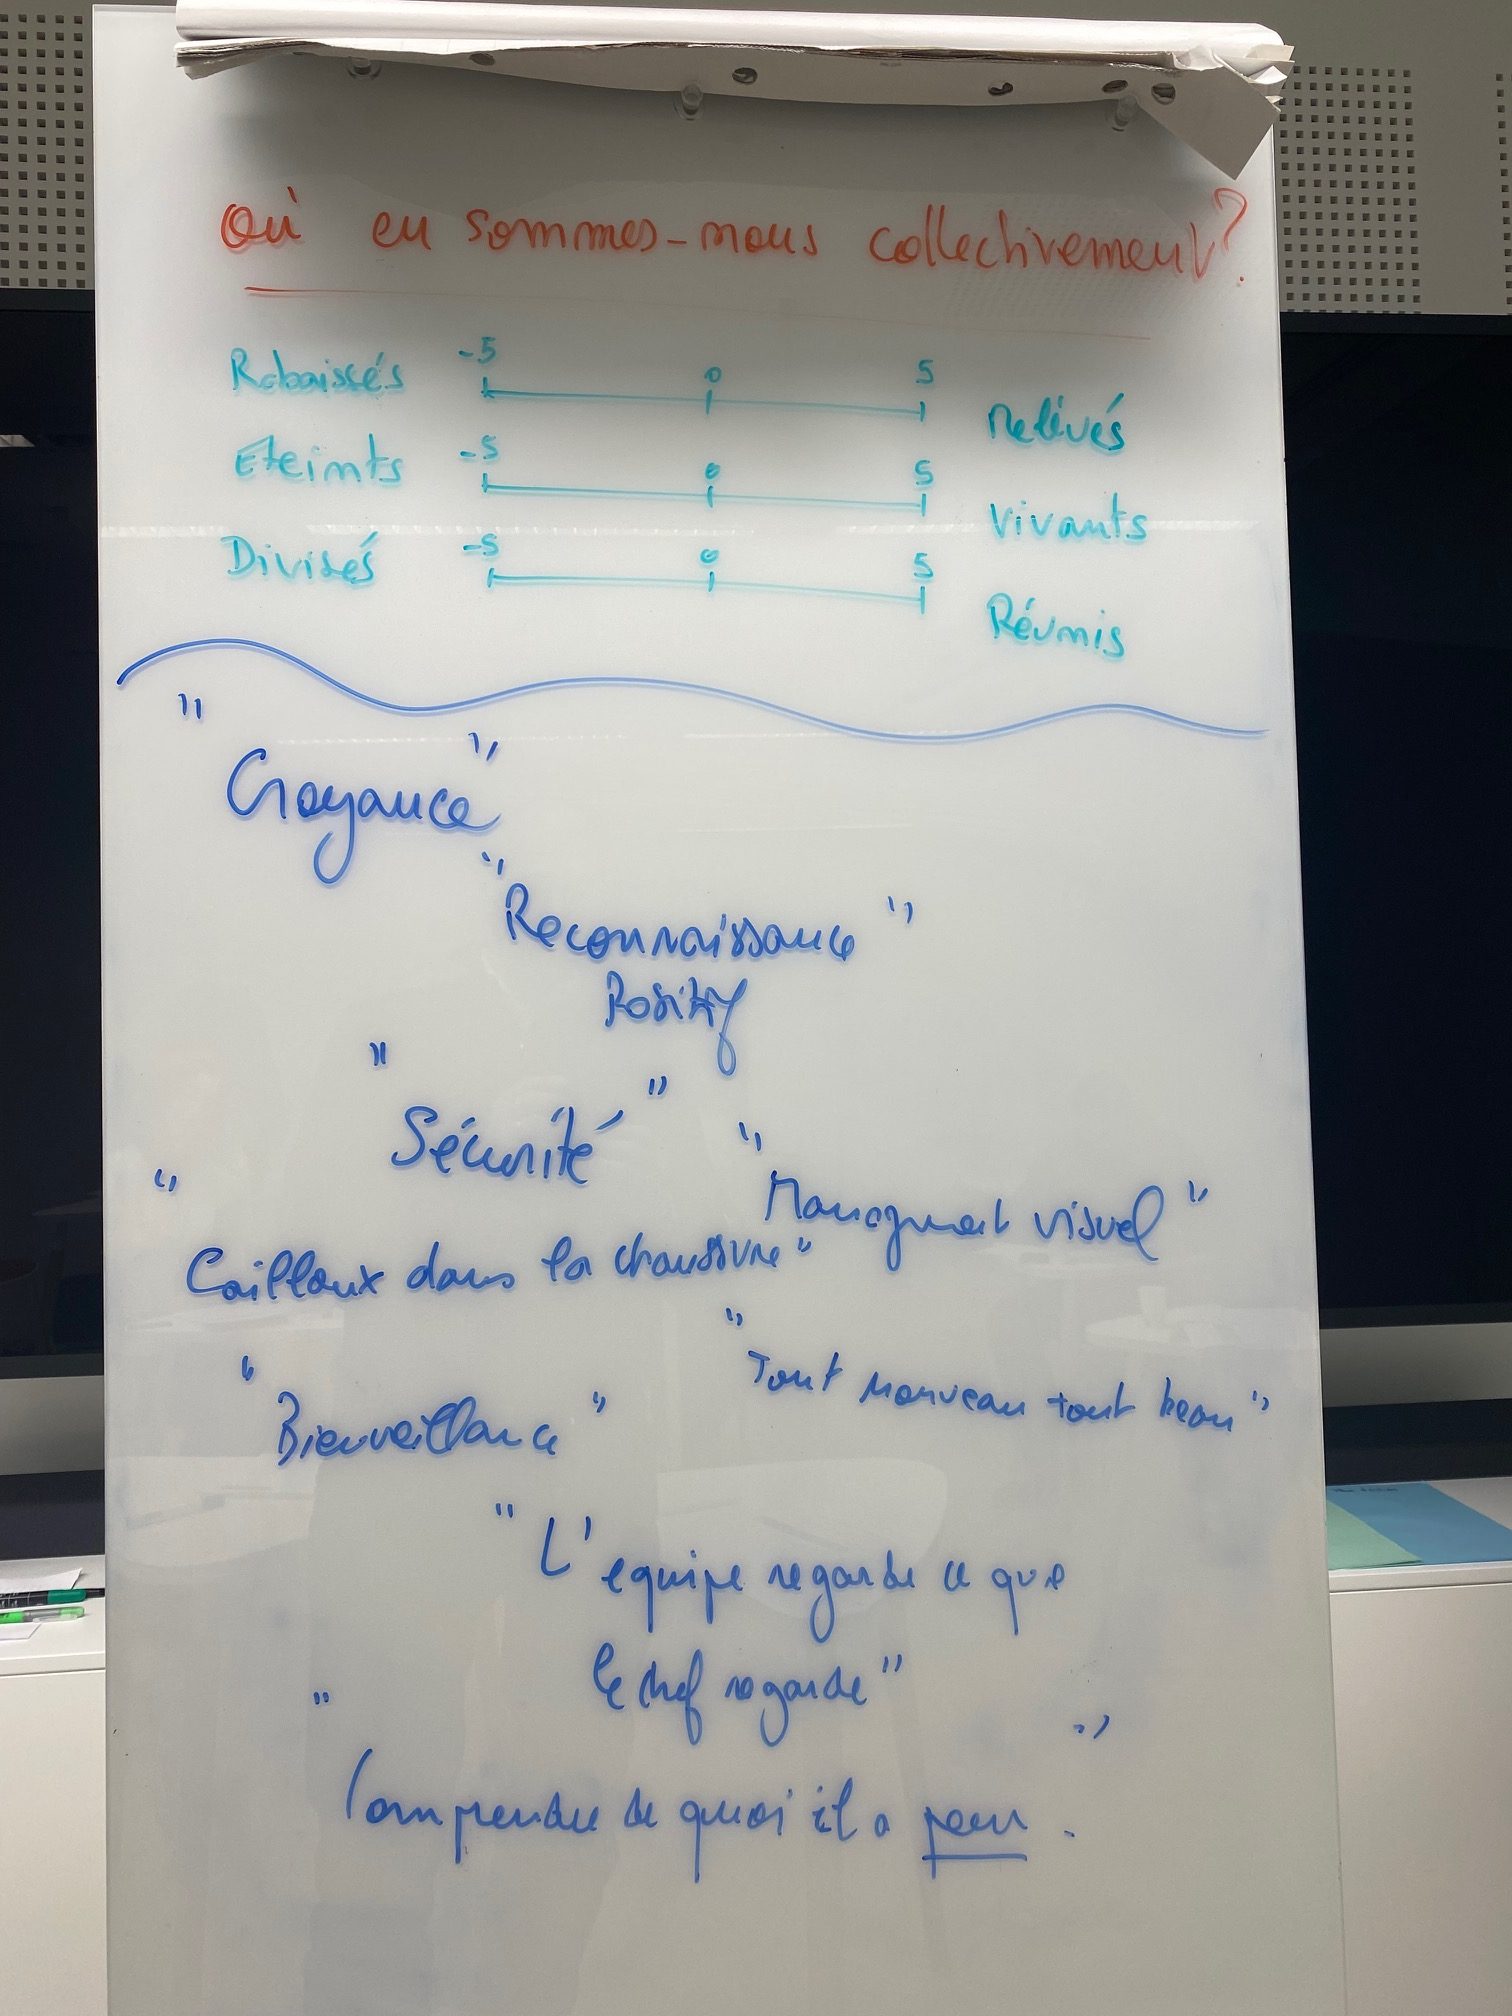 Où en sommes-nous collectivement?
Rabaissés -5 0 5 relevés
Eteints -5 0 5 Vivants
Divisés -5 0 5 Réunis
"Croyance"
"Reconnaissance"
Positif
"Sécurité"
"Managment visuel"
"Cailloux dans la chaussure"
"Tout nouveau tout beau"
"Bienveillance"
"L'equipe regarde ce que
le chef regarde"
"Comprendre de quoi il a peur."